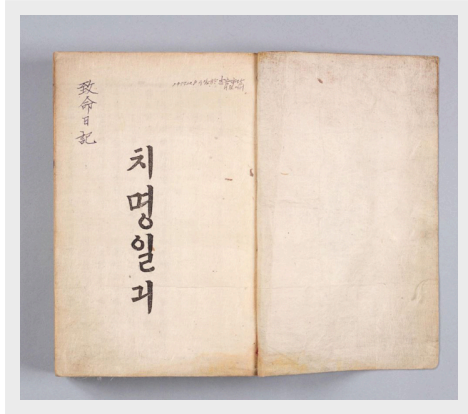 致命日記
치명일긔